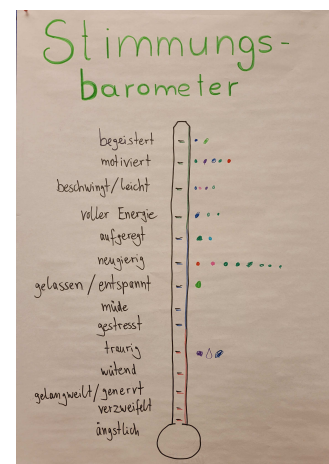 Stimmungs-
barometer
begeistert
motiviert
beschwingt/leicht
voller Energie
aufgeregt
neugierig
gelassen/entspannt
müde
gestresst
traurig
wütend
gelangweilt/genervt
verzweifelt
ängstlich